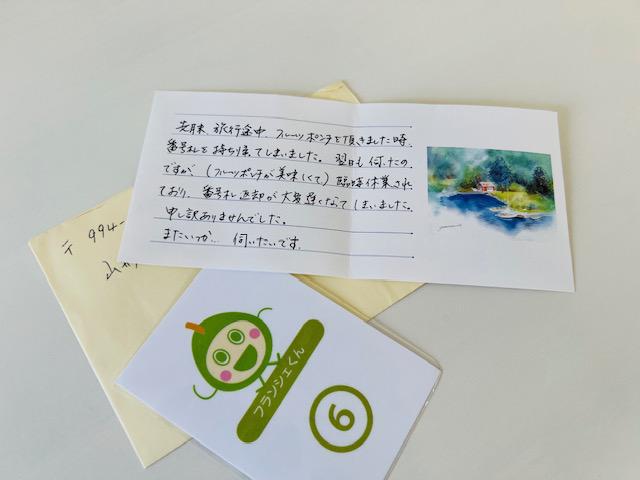 先月末、旅行途中、フルーツポンチを頂きました時、
番号札を持ち帰ってしまいました。翌日も伺ったの
ですが（フルーツポンチが美味しくて）臨時休業され
ており、番号札返却が大変遅くなってしまいました。
申し訳ありませんでした。
またいつか… 伺いたいです。
〒994-
山形
フランシェくん
6